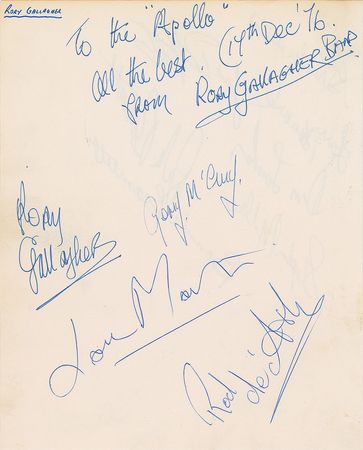 RORY GALLAGHER
To the "Apollo"
All the best. (14th Dec '76.
from RORY GALLAGHER BAND
Rory
Gallagher
Gerry McAvoy.
Lou Martin
Rod de'Ath